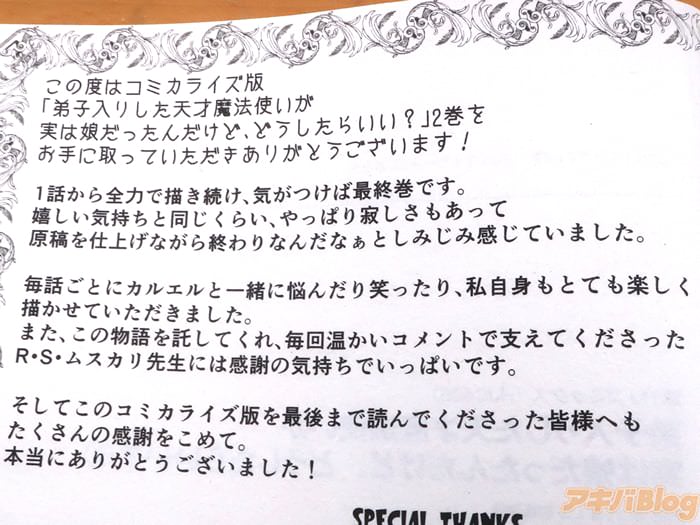 この度はコミカライズ版
「弟子入りした天才魔法使いが
実は娘だったんだけど、どうしたらいい？」2巻を
お手に取っていただきありがとうございます！
1話から全力で描き続け、気がつけば最終巻です。
嬉しい気持ちと同じくらい、やっぱり寂しさもあって
原稿を仕上げながら終わりなんだなぁとしみじみ感じていました。
毎話ごとにカルエルと一緒に悩んだり笑ったり、私自身もとても楽しく
描かせていただきました。
また、この物語を託してくれ、毎回温かいコメントで支えてくださった
R・S・ムスカリ先生には感謝の気持ちでいっぱいです。
そしてこのコミカライズ版を最後まで読んでくださった皆様へも
たくさんの感謝をこめて。
本当にありがとうございました！
SPECIAL THANKS
アキバBlog